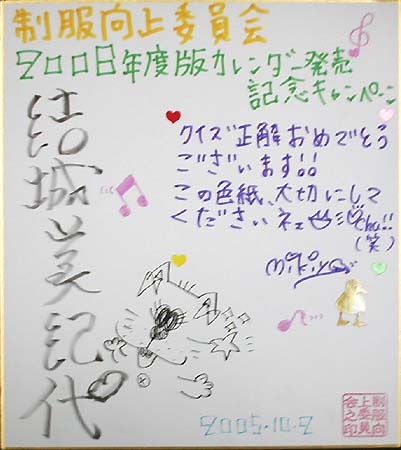 制服向上委員会
2006年度版カレンダー発売
記念キャンペーン
結城美記代
クイズ正解おめでとう
ございます!!
この色紙、大切にして
くださいネェ chu!!
(笑)
Mikiyo
制服向上委員会之印